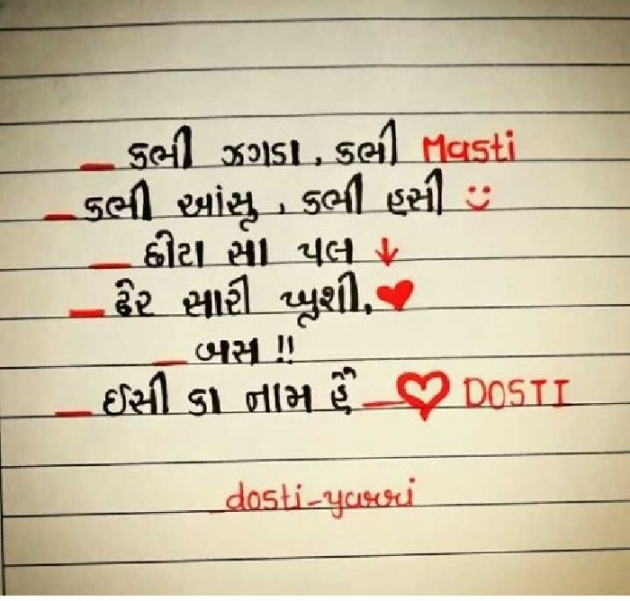 _ કભી ઝગડા, કભી Masti
_ કભી આંસૂ, કભી હસી
_ છોટા સા પલ ↓
_ ઢેર સારી ખુશી, ❤
_ બસ !!
_ ઈસી કા નામ હૈ _ ♡ DOSTI
dosti-yarri